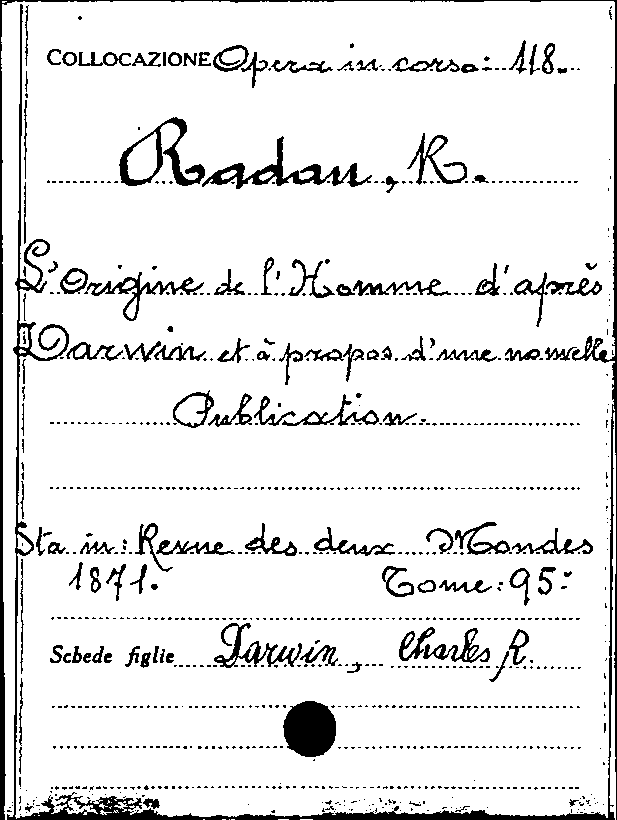 COLLOCAZIONE Opera in corso: 118.
Radau, R.
L'Origine de l'Homme d'après
Darwin et à propos d'une nouvelle
Publication.
Sta in: Revue des deux Mondes
1871. Tome: 95:
Schede figlie Darwin, Charles R.